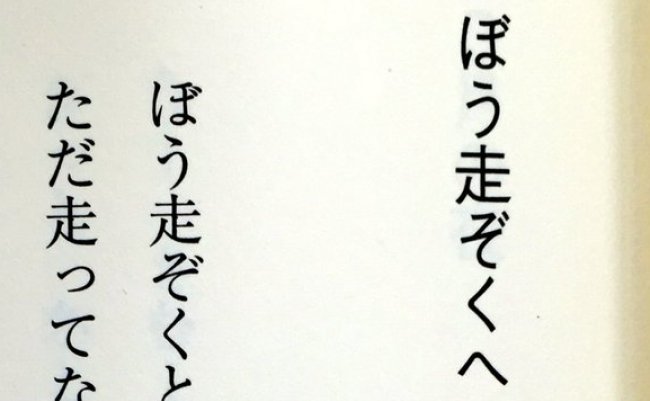 ぼう走ぞくへ
ぼう走ぞくと
ただ走ってな